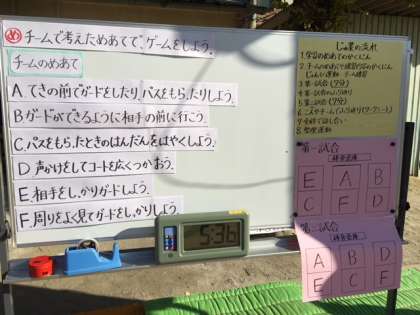 め チームで考えためあてで、ゲームをしよう。
チームのめあて
A てきの前でガードをしたり、パスをもらったりしよう。
B ガードができるように相手の前に行こう。
C パスをもらったときのはんだんをはやくしよう。
D 声かけをしてコートを広くつかおう。
E 相手をしっかりガードしよう。
F 周りをよく見てガードをしっかりしよう。
5:36
じゅ業の流れ
1.学習のめあてのかくにん
2.チームのめあてと練習内容のかくにん
じゅんび運動 チーム練習
3.第一試合(7分)
5.第二試合(7分)
8.整理運動
第一試合
E A B
C F D
第二試合
A B D
E C F